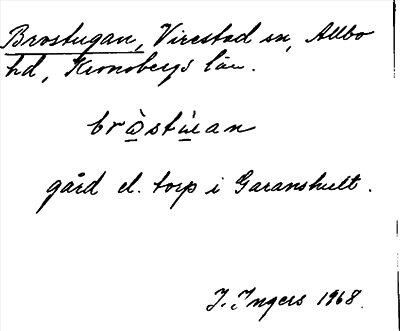 Brostugan, Virestad sn, Allbo
hd, Kronobergs län.
bròstùan
gård el. torp i Garanshult.
I. Ingers 1968.